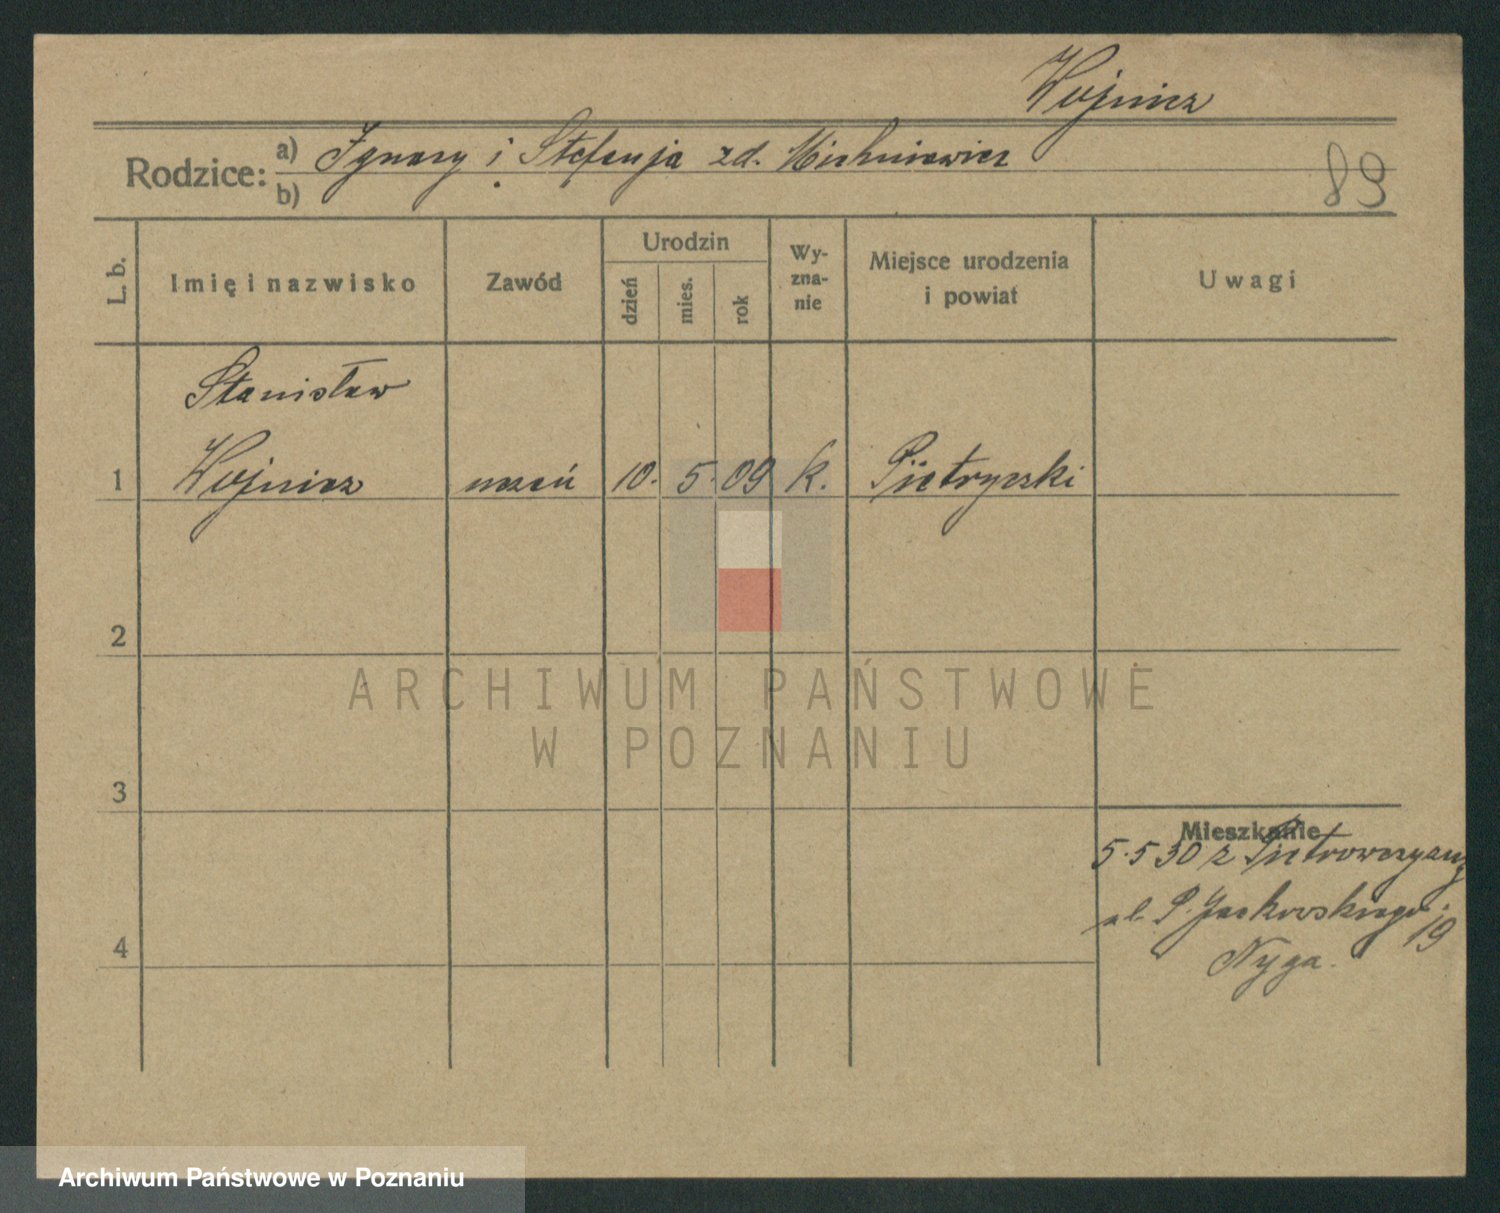 Wojnicz
Rodzice: a) Ignacy i Stefanja zd. Michniewicz
b)
89
L. b.
Imię i nazwisko
Zawód
Urodzin
dzień
mies.
rok
Wy-
zna-
nie
Miejsce urodzenia
i powiat
Uwagi
Stanisław
1 Wojnicz uczeń 10. 5. 09 k. Pietryszki
2
ARCHIWUM PAŃSTWOWE
W POZNANIU
3
Mieszkanie
5.5 30 z
ul. P. Jackowskiego
19
Nyga.
4
Archiwum Państwowe w Poznaniu